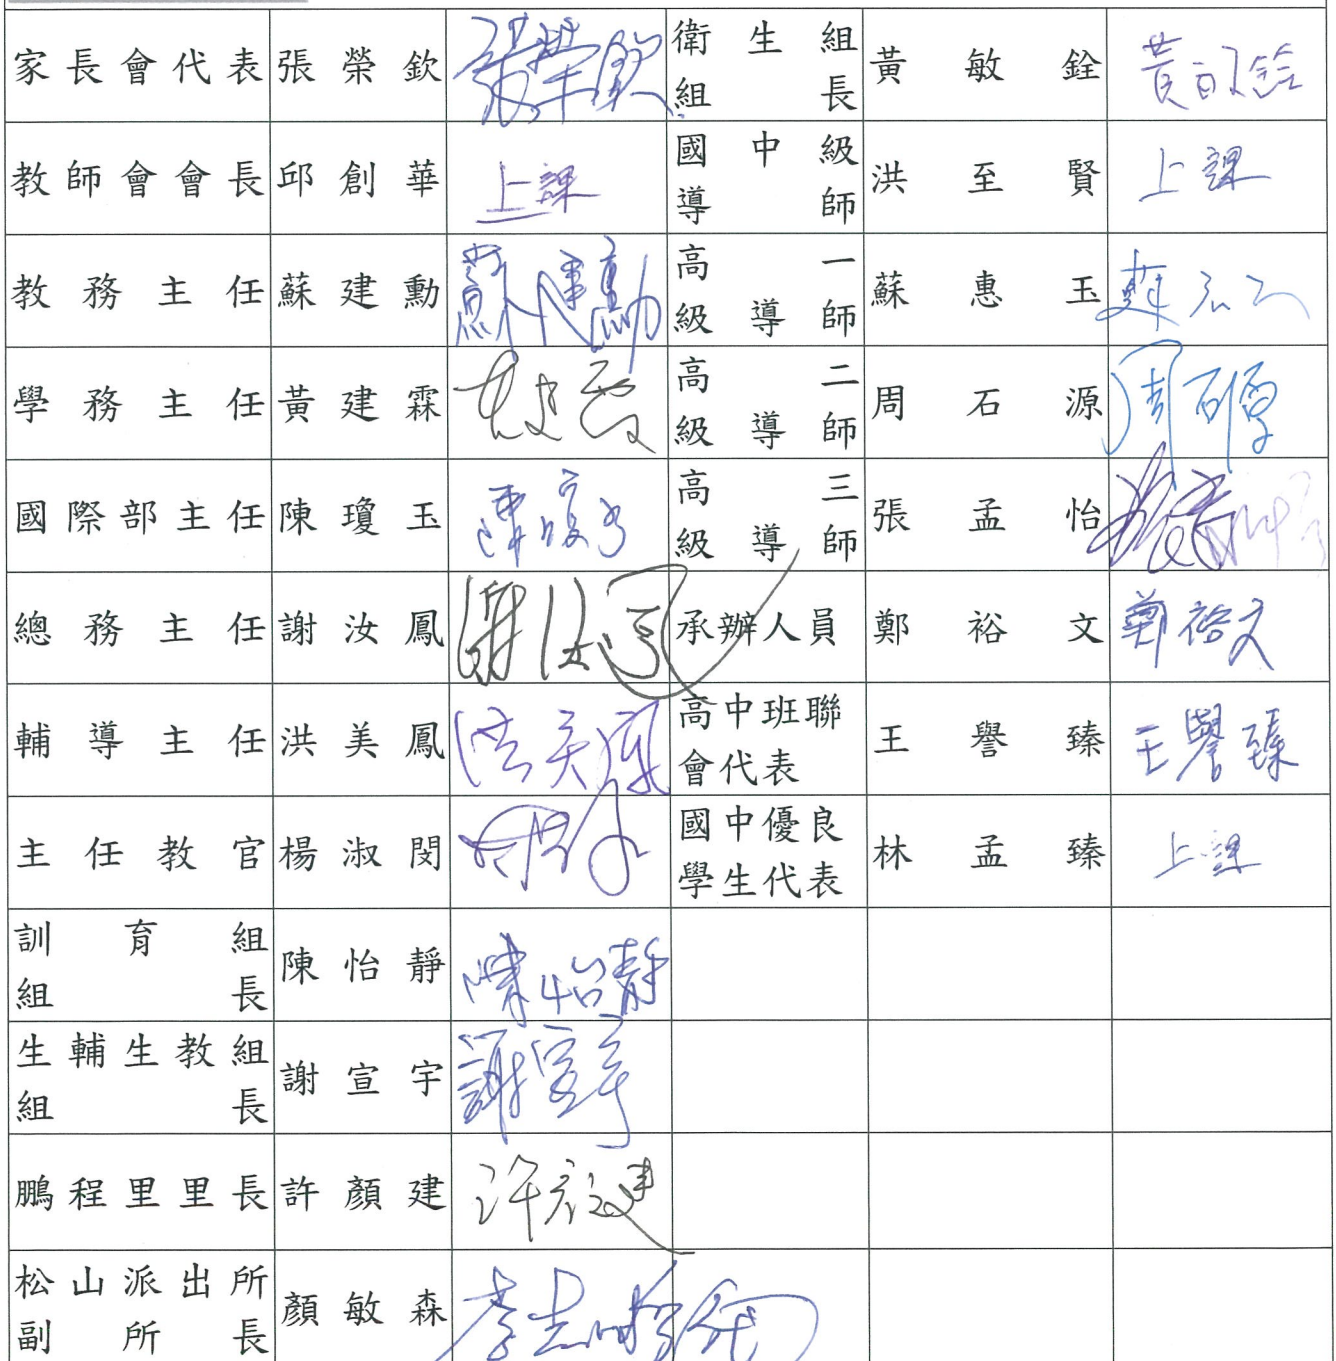 家長會代表 張榮欽 張榮欽 衛生組組長 黃敏銓 黃敏銓
教師會會長 邱創華 上課 國中級導師 洪至賢 上課
教務主任 蘇建勳 蘇建勳 高一級導師 蘇惠玉
學務主任 黃建霖 高二級導師 周石源 周石源
國際部主任 陳瓊玉 陳瓊玉 高三級導師 張孟怡
總務主任 謝汝鳳 謝汝鳳 承辦人員 鄭裕文 鄭裕文
輔導主任 洪美鳳 洪美鳳 高中班聯會代表 王譽臻 王譽臻
主任教官 楊淑閔 國中優良學生代表 林孟臻 上課
訓育組組長 陳怡靜 陳怡靜
生輔生教組組長 謝宣宇 謝宣宇
鵬程里里長 許顏建 許彥建
松山派出所副所長 顏敏森